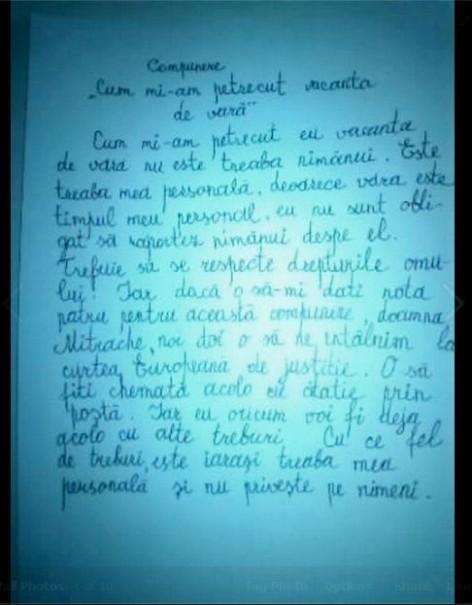 Compunere
„Cum mi-am petrecut vacanta
de vară"
Cum mi-am petrecut eu vacanta
de vara nu este treaba nimănui. Este
treaba mea personală, deoarece vara este
timpul meu personal, eu nu sunt obli-
gat să raportez nimănui despe el.
Trebuie să se respecte drepturile omu-
lui! Iar dacă o să-mi dati nota
patru pentru această compunere, doamna
Mitrache, noi doi o să ne intâlnim la
curtea Europeană de justitie. O să
fiti chemată acolo cu citatie prin
poștă. Iar eu oricum voi fi deja
acolo cu alte treburi. Cu ce fel
de treburi, este iarași treaba mea
personală și nu privește pe nimeni.
Tag Photo Options Share